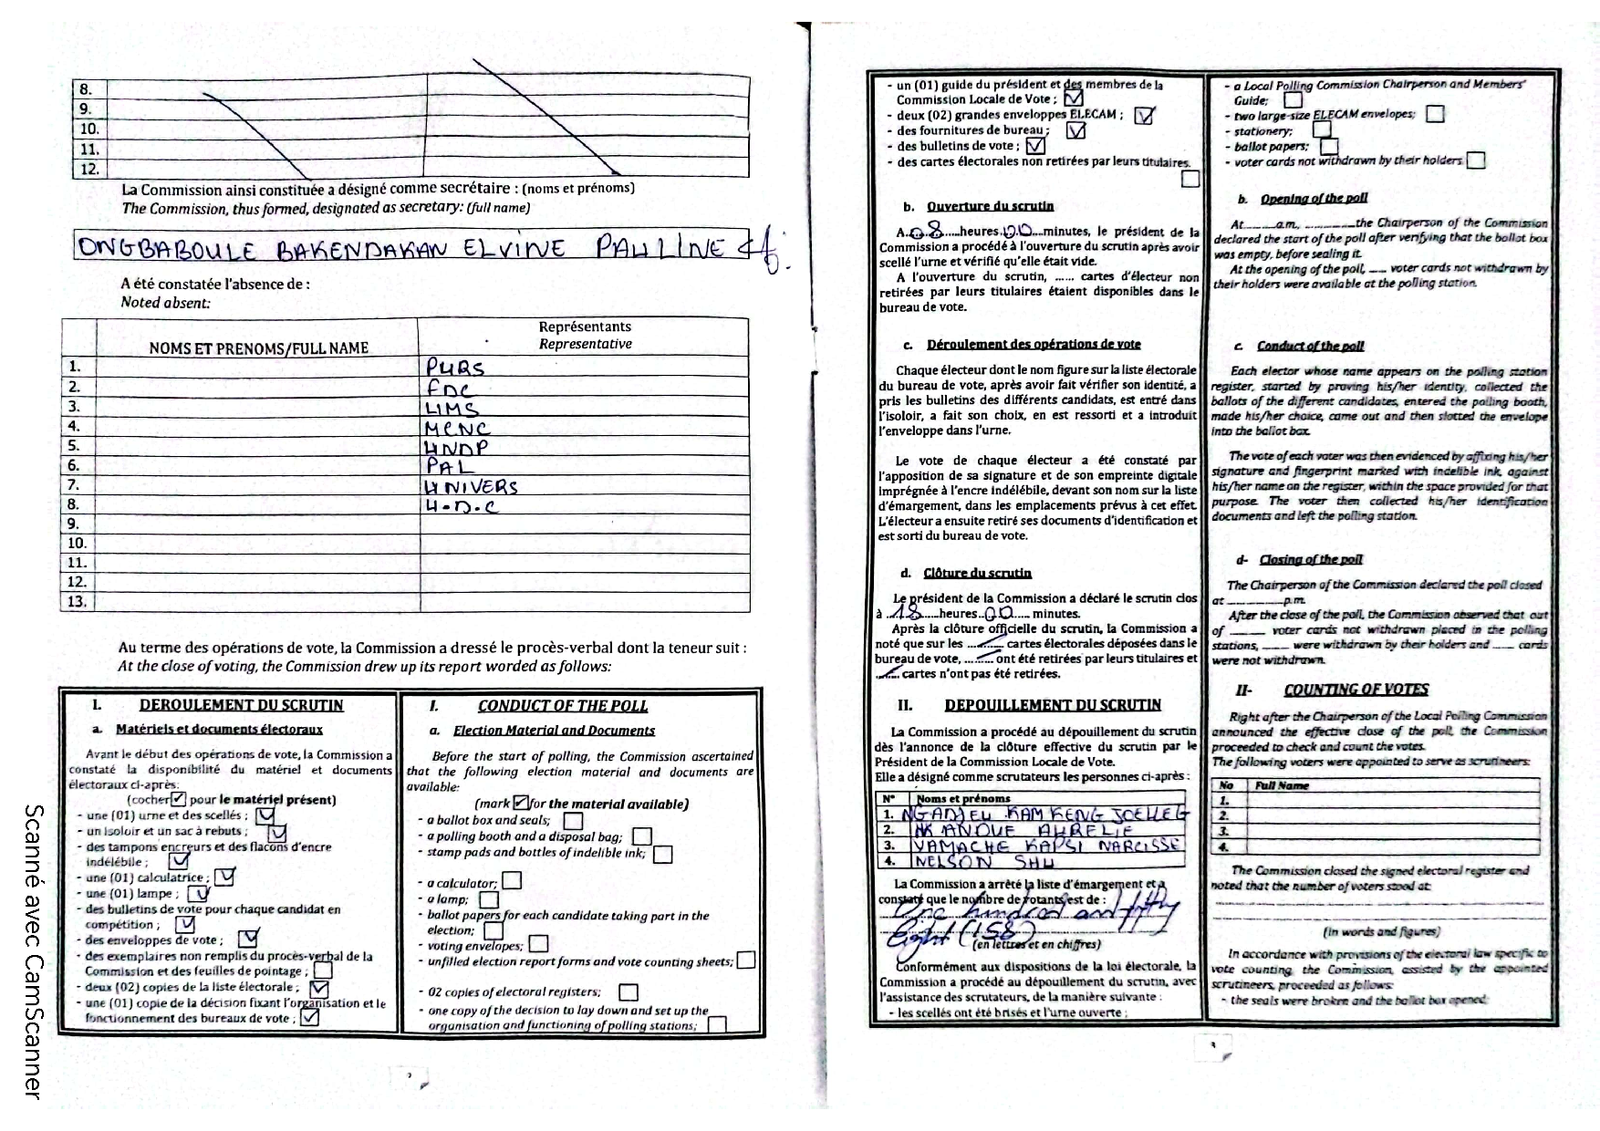 8.
9.
10.
11.
12.
La Commission ainsi constituée a désigné comme secrétaire : (noms et prénoms)
The Commission, thus formed, designated as secretary: (full name)
ONGBABOULE BAKENDAKAN ELVINE PAULINE
A été constatée l'absence de :
Noted absent:
NOMS ET PRENOMS/FULL NAME
Représentants
Representative
1. PURS
2. FDC
3. LIMS
4. MCNC
5. UNDP
6. PAL
7. UNIVERS
8. U.D.C
9.
10.
11.
12.
13.
Au terme des opérations de vote, la Commission a dressé le procès-verbal dont la teneur suit :
At the close of voting, the Commission drew up its report worded as follows:
I. DEROULEMENT DU SCRUTIN
a. Matériels et documents électoraux
Avant le début des opérations de vote, la Commission a
constaté la disponibilité du matériel et documents
électoraux ci-après:
(cocher ☑ pour le matériel présent)
- une (01) urne et des scellés ; ☑
- un isoloir et un sac à rebuts ; ☑
- des tampons encreurs et des flacons d'encre
indélébile ; ☑
- une (01) calculatrice ; ☑
- une (01) lampe ; ☑
- des bulletins de vote pour chaque candidat en
compétition ; ☑
- des enveloppes de vote ; ☑
- des exemplaires non remplis du procès-verbal de la
Commission et des feuilles de pointage ; ☐
- deux (02) copies de la liste électorale ; ☑
- une (01) copie de la décision fixant l'organisation et le
fonctionnement des bureaux de vote ; ☑
I. CONDUCT OF THE POLL
a. Election Material and Documents
Before the start of polling, the Commission ascertained
that the following election material and documents are
available:
(mark ☑ for the material available)
- a ballot box and seals; ☐
- a polling booth and a disposal bag; ☐
- stamp pads and bottles of indelible ink; ☐
- a calculator; ☐
- a lamp; ☐
- ballot papers for each candidate taking part in the
election; ☐
- voting envelopes; ☐
- unfilled election report forms and vote counting sheets; ☐
- 02 copies of electoral registers; ☐
- one copy of the decision to lay down and set up the
organisation and functioning of polling stations; ☐
Scanné avec CamScanner
- un (01) guide du président et des membres de la
Commission Locale de Vote ; ☑
- deux (02) grandes enveloppes ELECAM ; ☑
- des fournitures de bureau ; ☑
- des bulletins de vote ; ☑
- des cartes électorales non retirées par leurs titulaires.
☐
b. Ouverture du scrutin
A..08....heures.00...minutes, le président de la
Commission a procédé à l'ouverture du scrutin après avoir
scellé l'urne et vérifié qu'elle était vide.
A l'ouverture du scrutin, ...... cartes d'électeur non
retirées par leurs titulaires étaient disponibles dans le
bureau de vote.
c. Déroulement des opérations de vote
Chaque électeur dont le nom figure sur la liste électorale
du bureau de vote, après avoir fait vérifier son identité, a
pris les bulletins des différents candidats, est entré dans
l'isoloir, a fait son choix, en est ressorti et a introduit
l'enveloppe dans l'urne.
Le vote de chaque électeur a été constaté par
l'apposition de sa signature et de son empreinte digitale
imprégnée à l'encre indélébile, devant son nom sur la liste
d'émargement, dans les emplacements prévus à cet effet.
L'électeur a ensuite retiré ses documents d'identification et
est sorti du bureau de vote.
d. Clôture du scrutin
Le président de la Commission a déclaré le scrutin clos
à .18.....heures..00.... minutes.
Après la clôture officielle du scrutin, la Commission a
noté que sur les ........ cartes électorales déposées dans le
bureau de vote, ........ ont été retirées par leurs titulaires et
...... cartes n'ont pas été retirées.
II. DEPOUILLEMENT DU SCRUTIN
La Commission a procédé au dépouillement du scrutin
dès l'annonce de la clôture effective du scrutin par le
Président de la Commission Locale de Vote.
Elle a désigné comme scrutateurs les personnes ci-après :
N° Noms et prénoms
1. NGADJEU KAMKENG JOELLE G
2. AURELIE
3. YAMACHE KAPSI NARCISSE
4. NELSON SHU
La Commission a arrêté la liste d'émargement et a
constaté que le nombre de votants est de :
One hundred and fifthy
Eight (158)
(en lettres et en chiffres)
Conformément aux dispositions de la loi électorale, la
Commission a procédé au dépouillement du scrutin, avec
l'assistance des scrutateurs, de la manière suivante :
- les scellés ont été brisés et l'urne ouverte ;
- a Local Polling Commission Chairperson and Members'
Guide; ☐
- two large-size ELECAM envelopes; ☐
- stationery; ☐
- ballot papers; ☐
- voter cards not withdrawn by their holders ☐
b. Opening of the poll
At.......a.m, ..............the Chairperson of the Commission
declared the start of the poll after verifying that the ballot box
was empty, before sealing it.
At the opening of the poll, .... voter cards not withdrawn by
their holders were available at the polling station.
c. Conduct of the poll
Each elector whose name appears on the polling station
register, started by proving his/her identity, collected the
ballots of the different candidates, entered the polling booth,
made his/her choice, came out and then slotted the envelope
into the ballot box.
The vote of each voter was then evidenced by affixing his/her
signature and fingerprint marked with indelible ink, against
his/her name on the register, within the space provided for that
purpose. The voter then collected his/her identification
documents and left the polling station.
d- Closing of the poll
The Chairperson of the Commission declared the poll closed
at ..............p.m.
After the close of the poll, the Commission observed that out
of ........ voter cards not withdrawn placed in the polling
stations, ...... were withdrawn by their holders and ..... cards
were not withdrawn.
II- COUNTING OF VOTES
Right after the Chairperson of the Local Polling Commission
announced the effective close of the poll, the Commission
proceeded to check and count the votes.
The following voters were appointed to serve as scrutineers:
No Full Name
1.
2.
3.
4.
The Commission closed the signed electoral register and
noted that the number of voters stood at:
(in words and figures)
In accordance with provisions of the electoral law specific to
vote counting, the Commission, assisted by the appointed
scrutineers, proceeded as follows:
- the seals were broken and the ballot box opened;